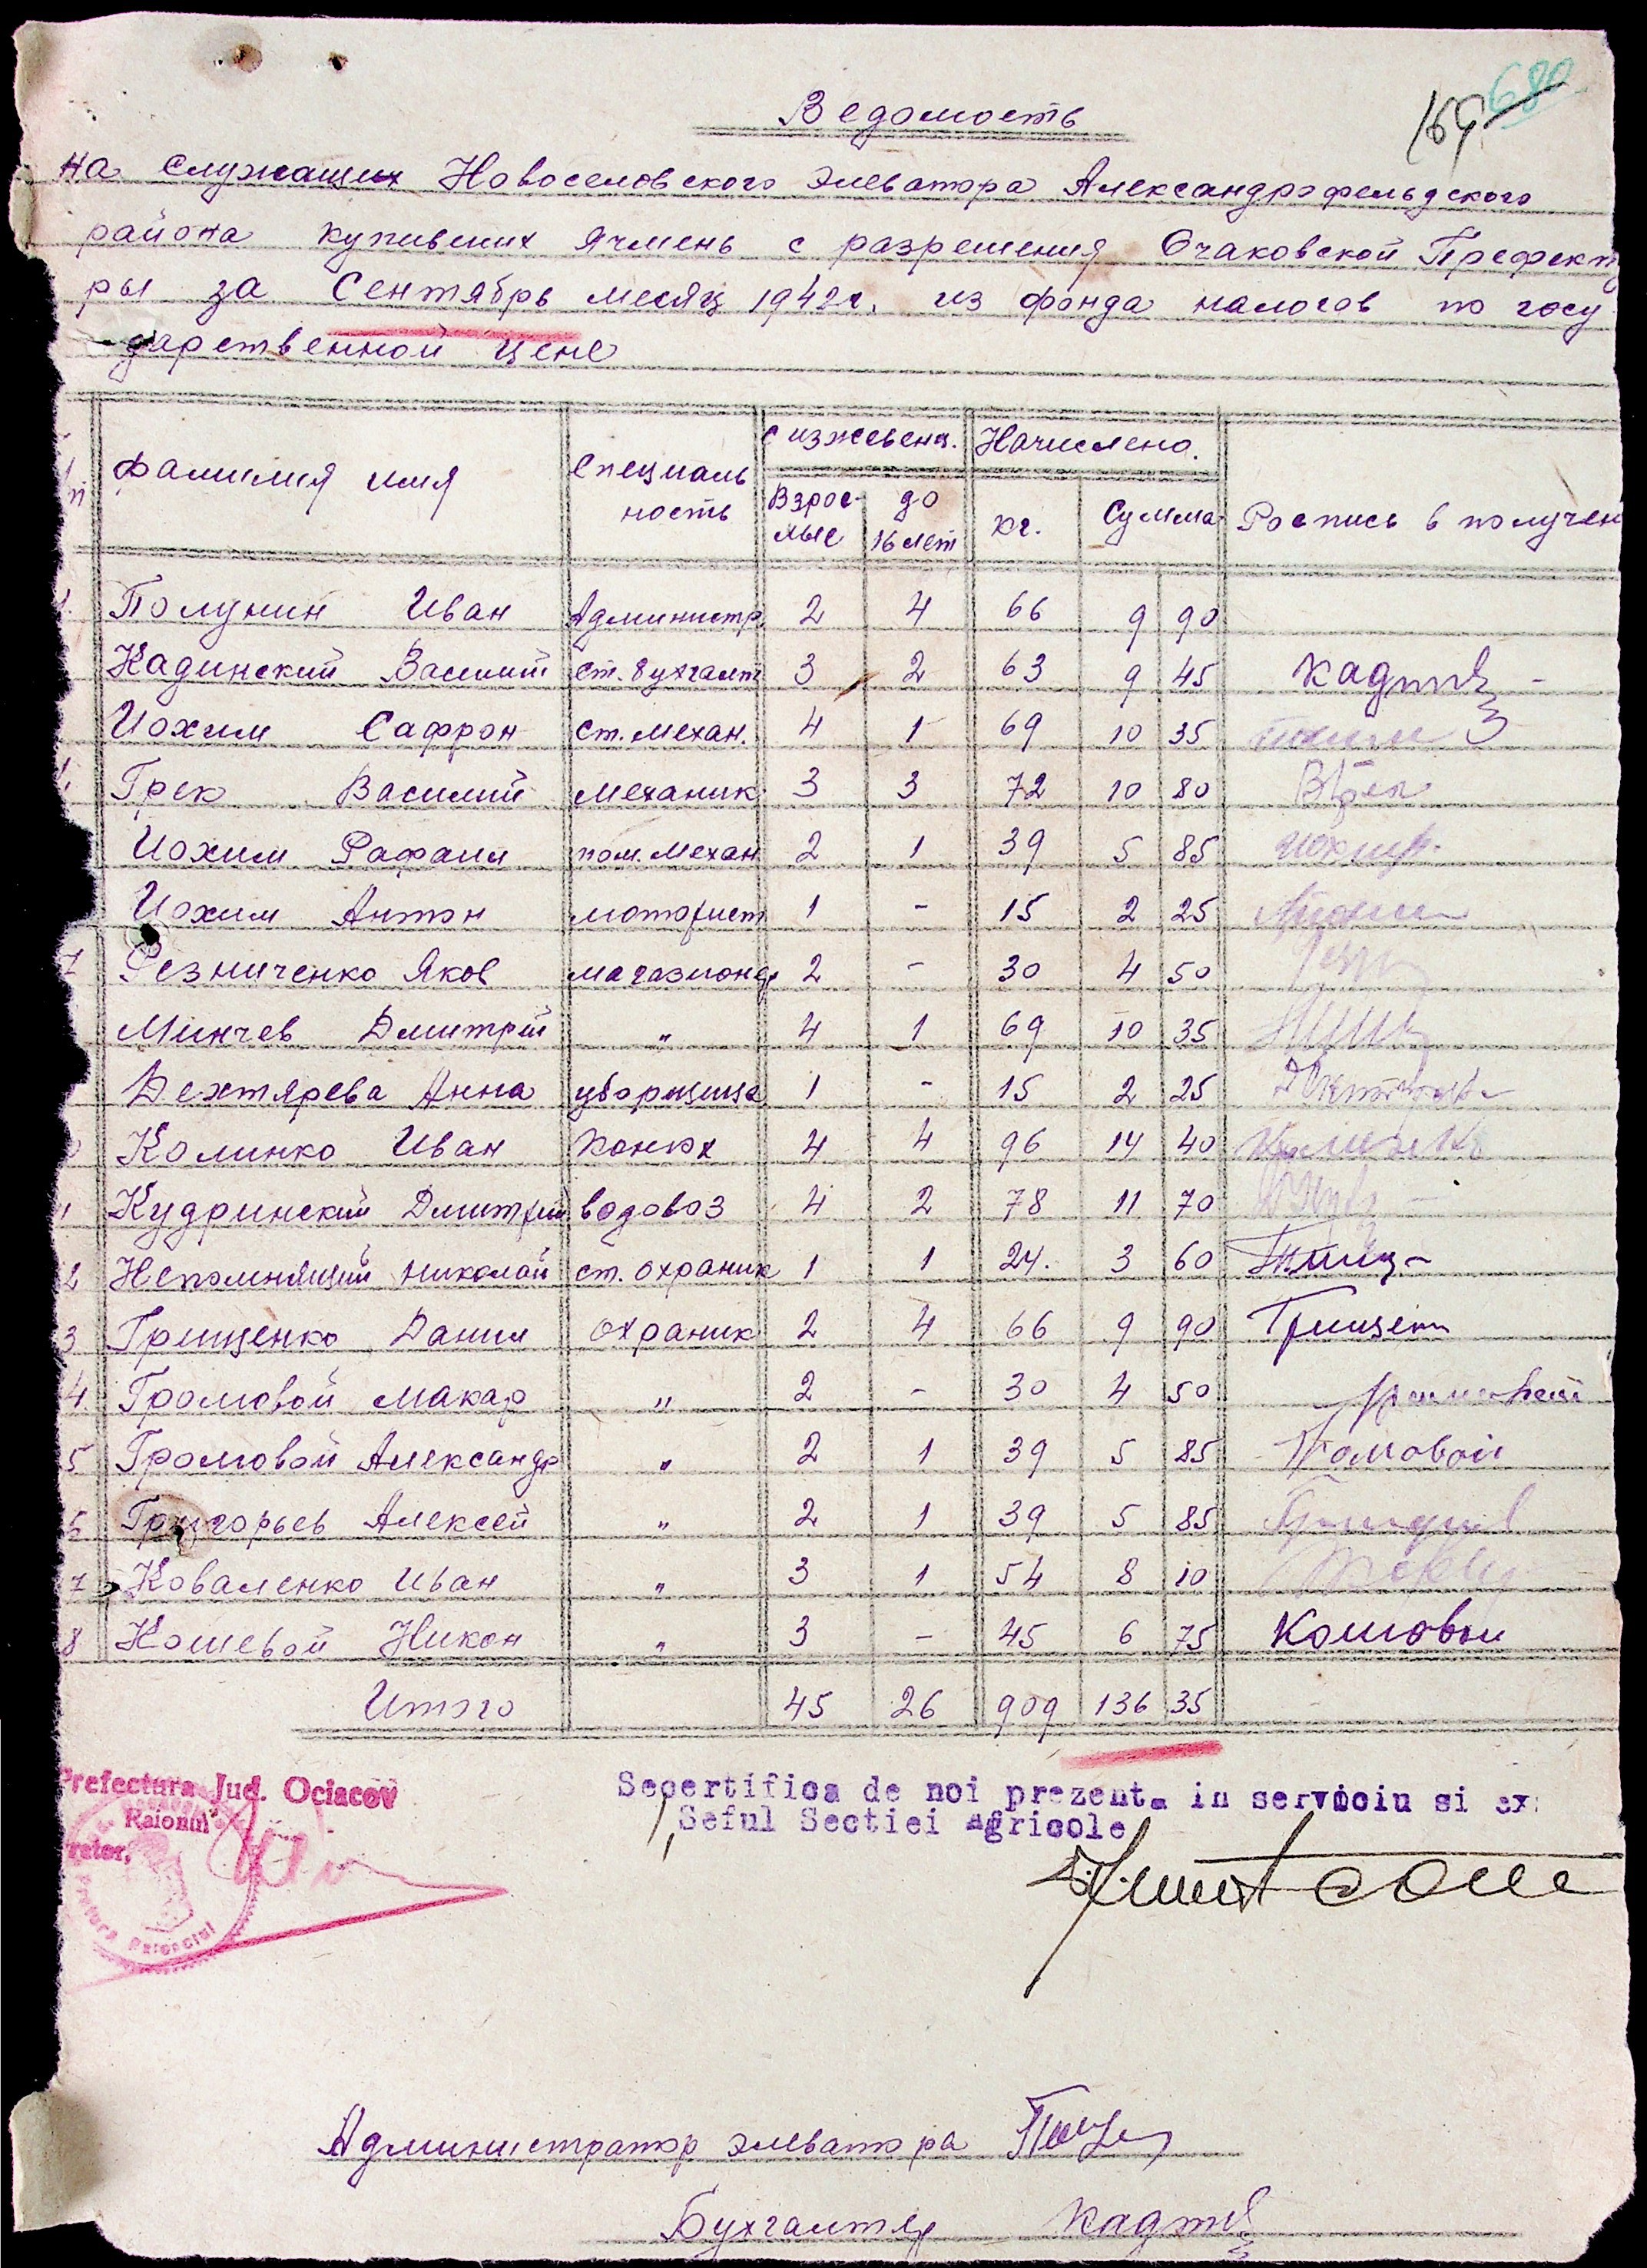 680
169
Ведомость
на служащих Новоселовского Элеватора Александрофельдского
района купивших ячмень с разрешения Очаковской Префект
ры за Сентябрь месяц 1942 г. из фонда налогов по госу
дарственной цене
п Фамилия имя Специаль ность с иждевенц. Взрос- лые до 16 лет Начислено. кг. Сумма Роспись в получен
Полунин Иван Администр. 2 4 66 9 90
Кадинский Василий ст. бухгалт 3 2 63 9 45
Иохим Сафрон ст. механ. 4 1 69 10 35 Иохим
Грек Василий механик 3 3 72 10 80 ВГрек
Иохим Рафаил пом. механ 2 1 39 5 85 Иохим
Иохим Антон моторист 1 - 15 2 25
7 Резниченко Яков магазионер 2 - 30 4 50
Минчев Дмитрий " 4 1 69 10 35
Дехтярева Анна уборщица 1 - 15 2 25
0 Колинко Иван конюх 4 4 96 14 40
1 Кудринский Дмитрий водовоз 4 2 78 11 70
2 Непомнящий Николай ст. охраник 1 1 24. 3 60
3 Грищенко Данил охраник 2 4 66 9 90 Грищенк
4. Громовой Макар " 2 - 30 4 50 Громовой
5 Громовой Александр " 2 1 39 5 85 Громовой
6 Григорьев Алексей " 2 1 39 5 85
7 Коваленко Иван " 3 1 54 8 10
8 Кошевой Никон " 3 - 45 6 75 Кошовой
Итого 45 26 909 136 35
Prefectura Jud. Ociacov
Raionul
retor,
Pretura Raionului
Secertifica de noi prezenta in serviciu si ex
Seful Sectiei Agricole
Администратор элеватора
Бухгалтер